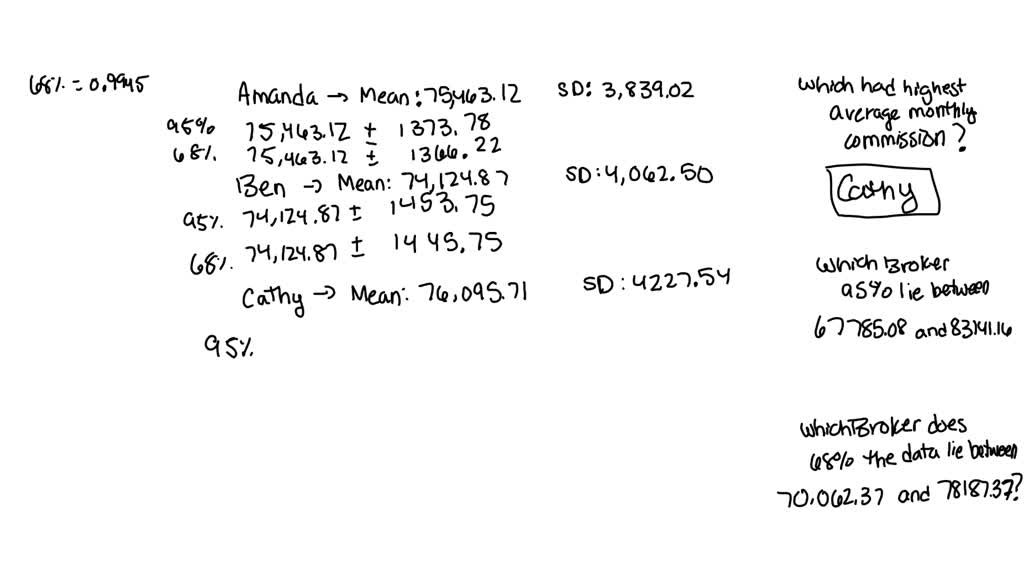 68% = 0.9945
Amanda → Mean: 75,463.12 SD: 3,839.02
95% 75,463.12 ± 1373.78
68% 75,463.12 ± 1366.22
Ben → Mean: 74,124.87 SD: 4,062.50
95% 74,124.87 ± 1453.75
68% 74,124.87 ± 1445.75
Cathy → Mean: 76,095.71 SD: 4227.54
95%
Which had highest
average monthly
commission?
Cathy
Which Broker
95% lie between
67785.08 and 83141.16
which Broker does
68% the data lie between
70,062.37 and 78187.37?